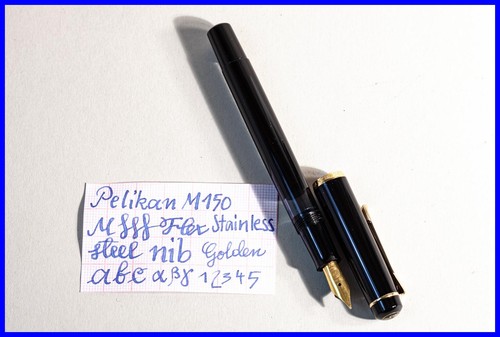 Pelikan M150
M fff Flex Stainless
steel nib Golden
a b c α β γ 1 2 3 4 5